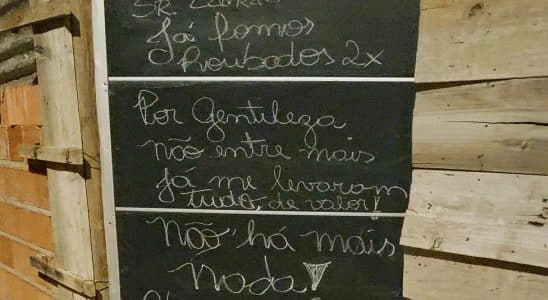 Sr. Ladrão
Já fomos
Roubados 2x
Por Gentileza
não entre mais
Já me levaram
tudo de valor!
Não há mais
Nada!